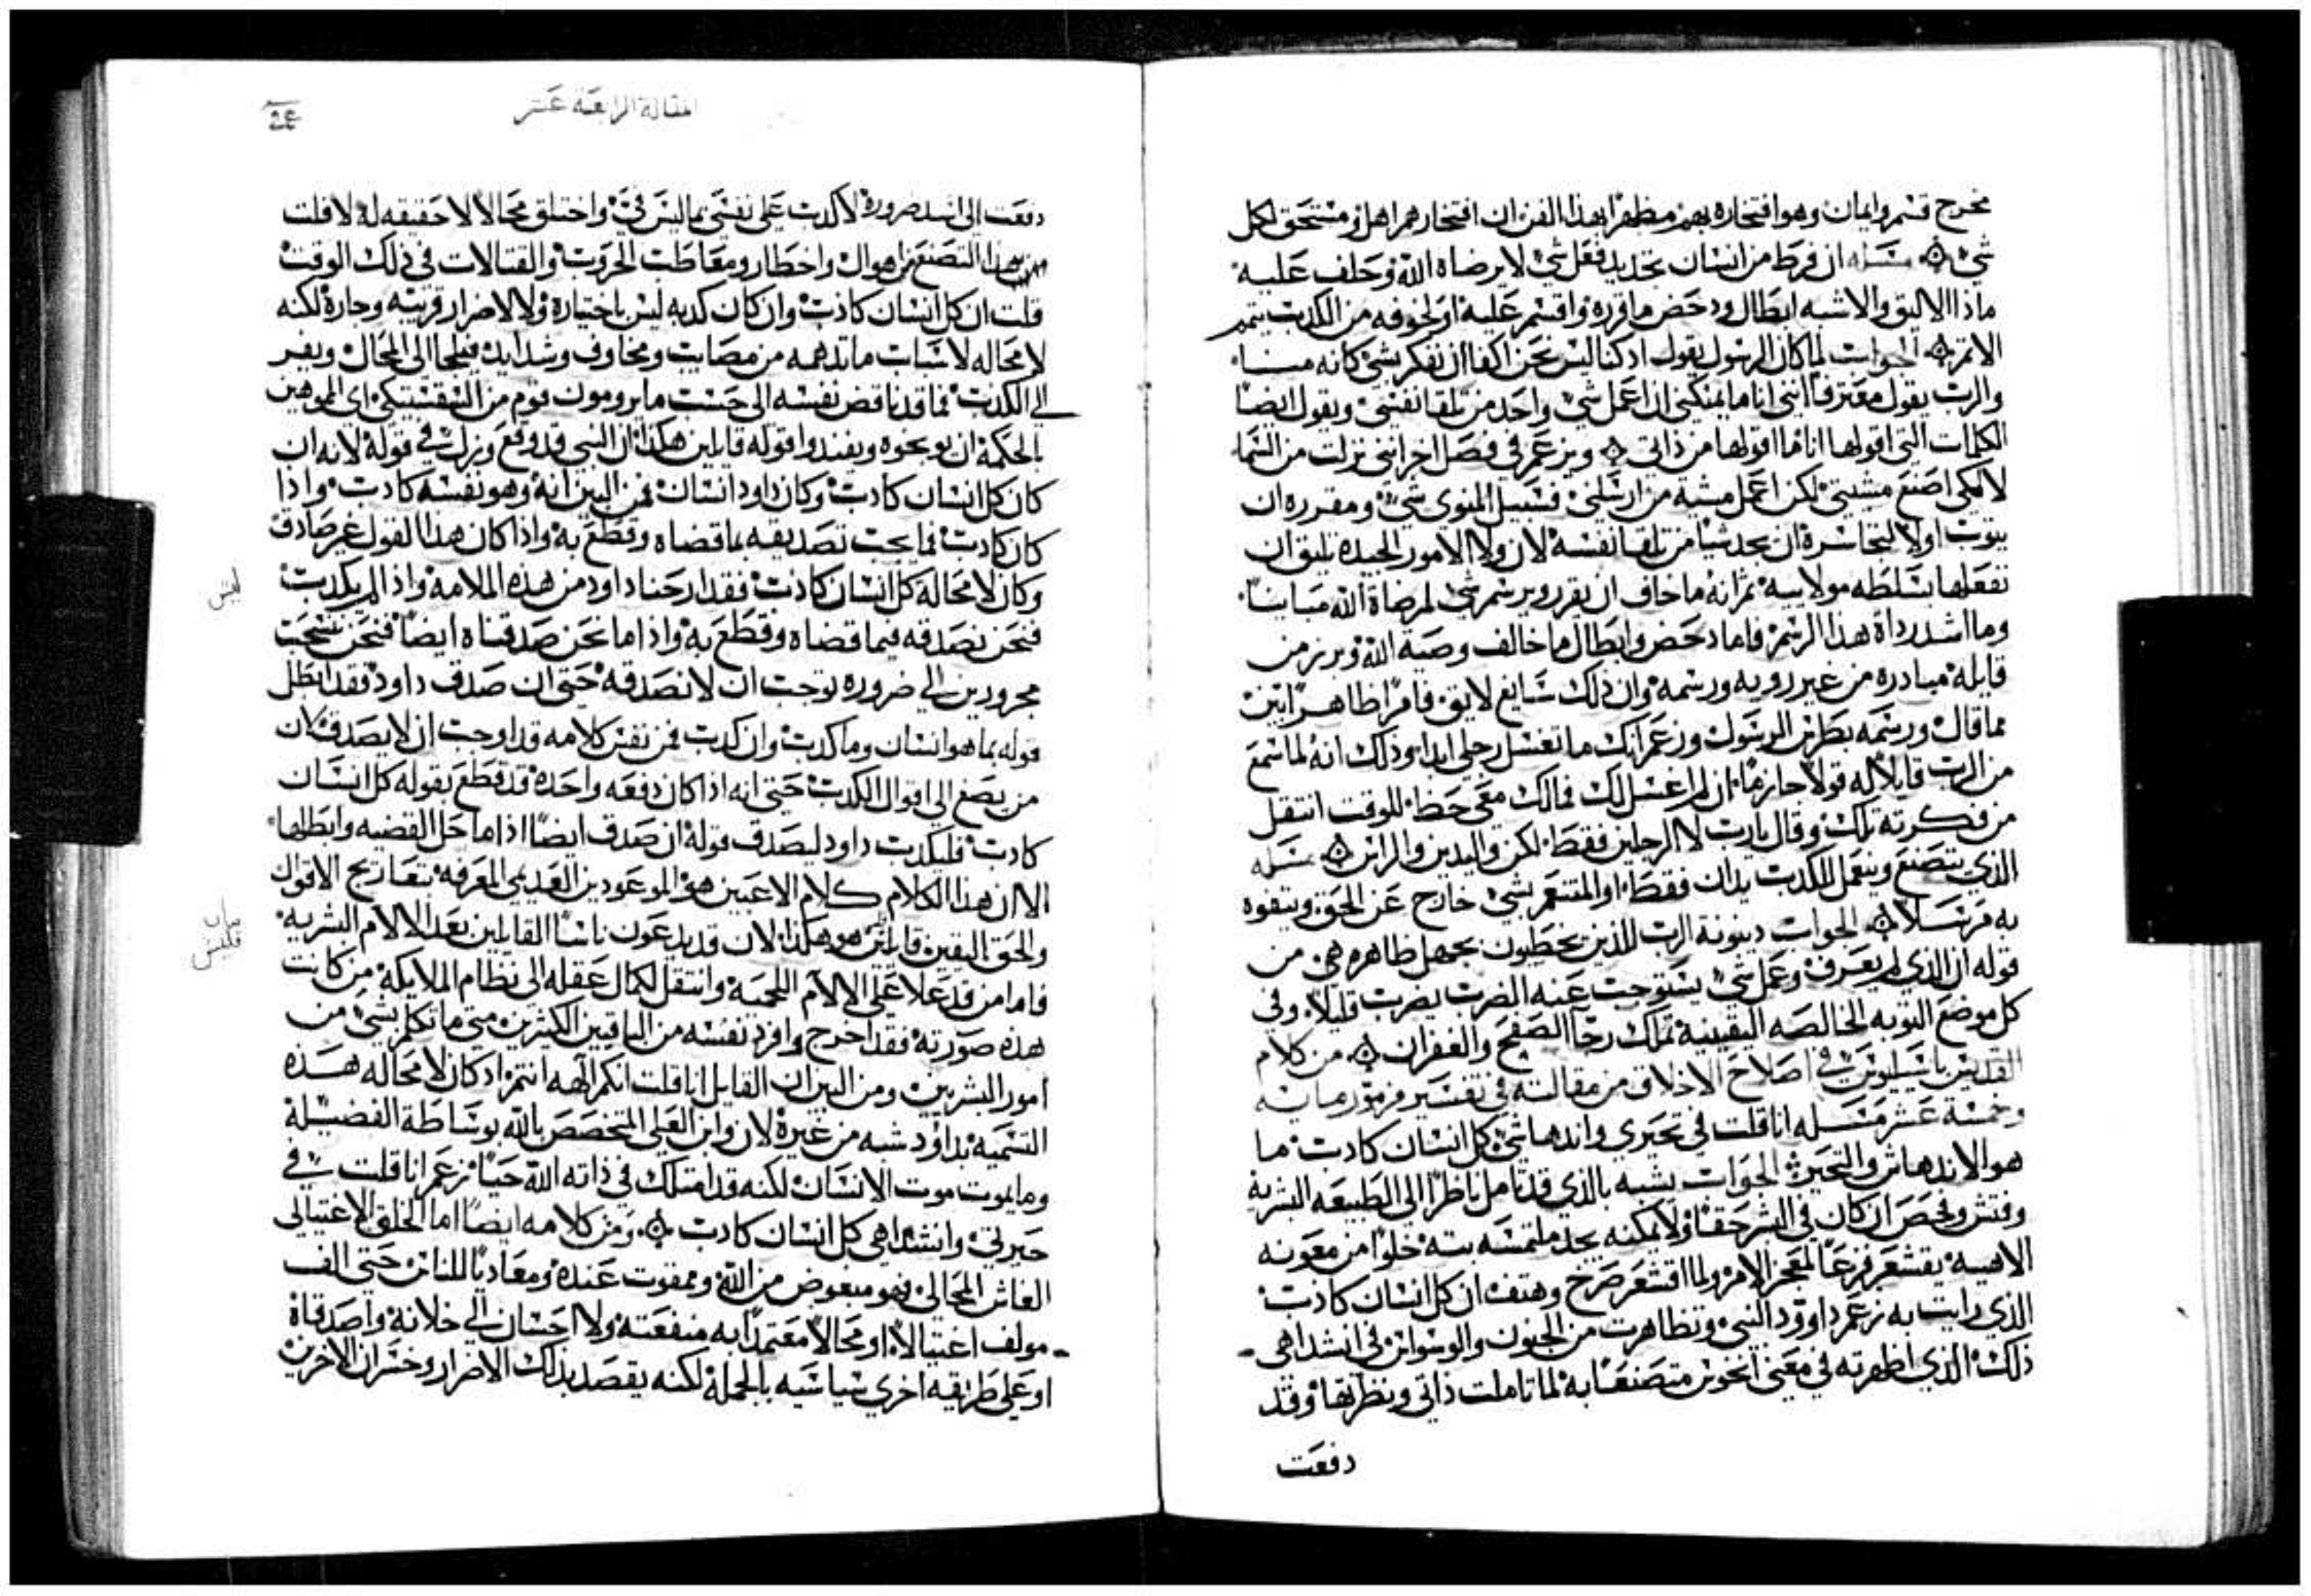 مخرج قسم وايمان وهو افتخاره بهم مظهرا بهذا الفن ان افتخارهم اهل ومستحق لكل
شي مسله ان فرط من انسان تحديد فعل شي لا يرضاه الله وحلف عليه
ماذا الاليق والاشبه ابطال ودحض ما قرره واقسم عليه او لخوفه من الكدب يتمم
الاثم الجواب لما كان الرسول يقول اد كنا ليس نحن اكفا ان نفكر بشي كانه منا
والرب يقول معترفا انني انا ما يمكنني ان اعمل شي واحد من تلقا نفسي ويقول ايضا
الكلمات التي اقولها انا ما اقولها من ذاتي ويزعم في فصل اخر انني نزلت من السما
لا لكي اصنع مشيتي لكن اعمل مشية من ارسلني فسبيل المنوي شي ومقرره ان
يتوب اولا لتجاسره ان يحد شيا من تلقا نفسه لان ولا الامور الجيدة يليق ان
نفعلها بسلطه مولانيه ثم انه ما خاف ان يقرر ويرسم شي لمرضاة الله مباينا
وما اشد رداة هذا الرسم فاما دحض وابطال ما خالف وصية الله وبرز من
قايله مبادرة من غير رويه ورسمه وان ذلك شايع لايق فامرا ظاهرا يبين
مما قال ورسمه بطرس الرسول وزعم انك ما تغسل رجلي ابدا وذلك انه لما سمع
من الرب قايلا له قولا جازما ان لم اغسل لك فمالك معي حظ للوقت انتقل
من فكرته تلك وقال يارب لا الرجلين فقط لكن واليدين والراس مسله
الذي يتصنع ويتعمل للكدب يدان فقط او المتنعم بشي خارج عن الحق ويتفوه
به مرتسلا الجواب دينونة الرب للذين يخطيون بجهل ظاهره هي من
قوله ان الذي لم يعرف وعمل شي يستوجب عنه الضرب يضرب قليلا وفي
كل موضع التوبه الخالصه اليقينية تملك رجا الصفح والغفران من كلام
القديس باسيليوس في اصلاح الاخلاق من مقالته في تفسير مزمور مايه
وخمسة عشر مسله انا قلت في تحيري واندهاشي كل انسان كادب ما
هو الاندهاش والتحير الجواب يشبه بالذي قد تامل ناظرا الى الطبيعه البشرية
وفتش وفحص ان كان في البشر حقا ولا يمكنه يجد ملتمسه بته خلوا من معونه
الاهيه يقشعر فزعا لمعجز الامر ولما اقشعر صرخ وهتف ان كل انسان كاذب
الذي رايت به زعم داوود النبي وتظاهرت من الجنون والوسواس في انشداهي
ذلك الذي اظهرته في معني انخوس متصنعا به لما تاملت ذاتي ونظرتها وقد
دفعت
المقالة الرابعة عشر
دفعت الى اشد ضرورة لاكدب على نفسي بما ليس في واختلق محالا لا حقيقه له لافلت
من هذا التصنع من اهوال واخطار ومغاطب الحروب والقتالات في ذلك الوقت
قلت ان كل انسان كاذب وان كان كدبه ليس باختياره ولا لاضرار قريبه وجاره لكنه
لا محاله لاسباب ما تدهمه من مصايب ومخاوف وشدايد فيلجا الى المحال ويفر
الي الكدب فما قد ناقض نفسه الى حسب ما يرومون قوم من السفسيكي اي المموهين
بالحكمة ان يوبخوه ويفندوا قوله قايلين هكذا ان النبي قد وقع وزل في قوله لانه ان
كان كل انسان كادب وكان داود انسان فمن البين انه وهو نفسه كادب واذا
كان كادب فما يجب تصديقه بما قضاه وقطع به واذا كان هذا القول غير صادق
وكان لا محالة كل انسان كاذب فقد ارحنا داود من هذه الملامة واذ لم يكدب
فنحن نصدقه فيما قضاه وقطع به واذا ما نحن صدقناه ايضا فنحن نسحب
مجرورين الي ضروره توجب ان لا نصدقه حتى ان صدق داود فقد ابطل
قوله بما هو انسان وما كدب وان كدب فمن نفس كلامه قد اوجب ان لا يصدق لان
من يصغ الى اقوال الكدب حتى انه اذا كان دفعه واحدة قد قطع بقوله كل انسان
كادب فليكدب داود ليصدق قوله ان صدق ايضا اذا ما حل القضيه وابطلها
الا ان هذا الكلام كلام الاعبين هو الموعودين العديمي المعرفه بتعاريج الاقوال
والحق اليقين قايلين هو هكذا لان قد يدعون ناسا القابلين بعد الالام البشريه
فاما من قد علا على الالام اللحمية وانتقل لكمال عقله الى نظام الملايكة من كانت
هذه صورته فقد اخرج وافرد نفسه من الباقين الكثيرين متي ما تكلم بشي من
امور البشريين ومن البين ان القايل انا قلت انكم الهه انتم اد كان لا محاله هذه
التسميه بداود شبه من غيره لان وابن العلي المتخصص بالله بوساطة الفضيلة
وما يموت موت الانسان لكنه قد امتلك في ذاته الله حيا زعم انا قلت في
حيرتي وانشداهي كل انسان كادب ومن كلامه ايضا اما الخلق الاغتيالي
الغاش المحالي فهو مبغوض من الله وممقوت عنده ومعاديا للناس حتى الف
مولف اغتيالا او محالا معتمدا به منفعته ولا احسان الي خلانه واصدقاه
او على طريقه اخري سياسيه بالجملة لكنه يقصد بذلك الاضرار وخسران الاخرين